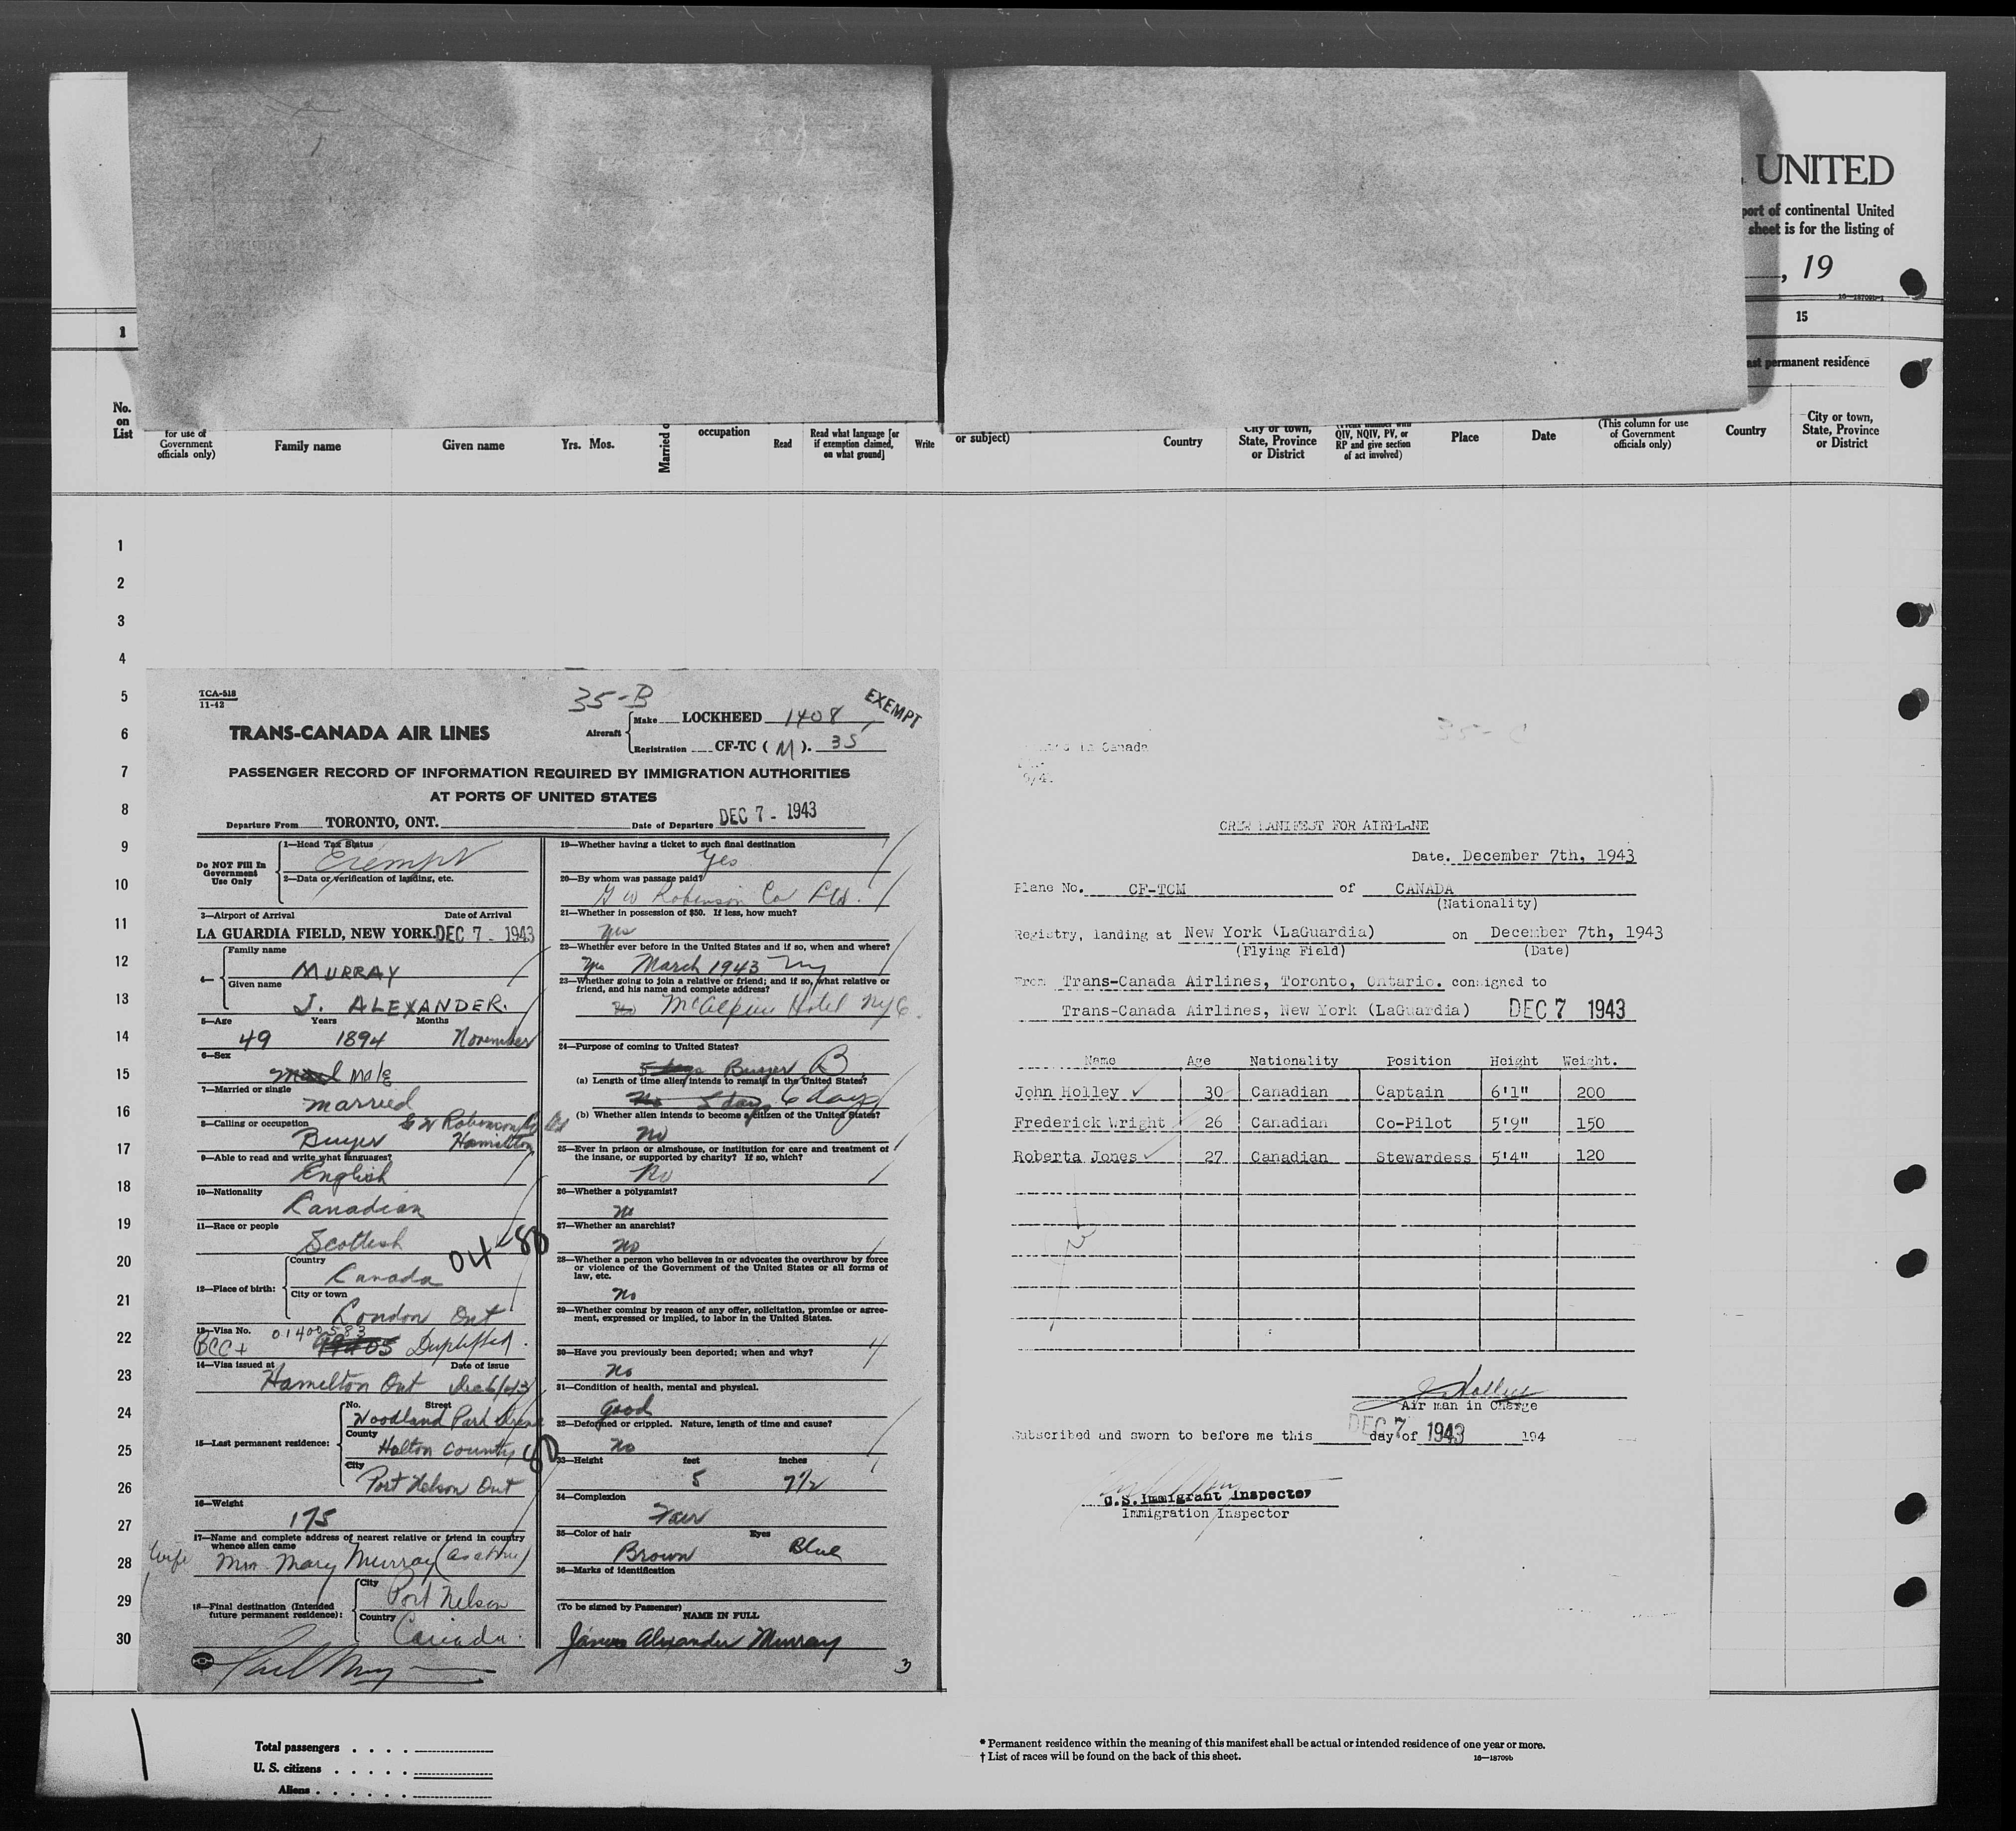 UNITED
port of continental United
sheet is for the listing of
, 19
16—18709b-1
1
15
permanent residence
No.
on
List
for use of
Government
officials only)
Family name
Given name
Yrs. Mos.
Married o
occupation
Read
Read what language [or
if exemption claimed,
on what ground]
Write
or subject)
Country
City or town,
State, Province
or District
QIV, NQIV, PV, or
RP and give section
of act involved)
Place
Date
(This column for use
of Government
officials only)
Country
City or town,
State, Province
or District
1
2
3
4
5
6
7
8
9
10
11
12
13
14
15
16
17
18
19
20
21
22
23
24
25
26
27
28
29
30
TCA-518
11-42
35-B
EXEMPT
TRANS-CANADA AIR LINES
Aircraft
Make LOCKHEED 1408
Registration CF-TC (M). 35
PASSENGER RECORD OF INFORMATION REQUIRED BY IMMIGRATION AUTHORITIES
AT PORTS OF UNITED STATES
Departure From TORONTO, ONT. Date of Departure DEC 7 - 1943
Do NOT Fill In
Government
Use Only
1—Head Tax Status
Exempt
2—Data or verification of landing, etc.
3—Airport of Arrival Date of Arrival
LA GUARDIA FIELD, NEW YORK. DEC 7 - 1943
4—
Family name
MURRAY
Given name
J. ALEXANDER.
5—Age Years Months
49 1894 November
6—Sex
Male
7—Married or single
married
8—Calling or occupation G W Robinson Co Ltd
Buyer Hamilton
9—Able to read and write what languages?
English
10—Nationality
Canadian
11—Race or people
Scottish
04-80
12—Place of birth:
Country
Canada
City or town
London Ont
13—Visa No. 01400583
BCC+
14—Visa issued at Date of issue
Hamilton Ont Dec 6/43
15—Last permanent residence:
No. Street
Woodland Park Drive
County
Halton County
80
City
Port Nelson Ont
16—Weight
175
17—Name and complete address of nearest relative or friend in country
whence alien came
wife Mrs. Mary Murray (as above)
18—Final destination (Intended
future permanent residence):
City
Port Nelson
Country
Canada.
19—Whether having a ticket to such final destination
Yes
20—By whom was passage paid?
G W Robinson Co Ltd.
21—Whether in possession of $50. If less, how much?
Yes
22—Whether ever before in the United States and if so, when and where?
Yes March 1943 NY
23—Whether going to join a relative or friend; and if so, what relative or
friend, and his name and complete address?
No McAlpin Hotel NYC.
24—Purpose of coming to United States?
5 days Buyer B
(a) Length of time alien intends to remain in the United States?
No 5 days 6 days
(b) Whether alien intends to become a citizen of the United States?
No
25—Ever in prison or almshouse, or institution for care and treatment of
the insane, or supported by charity? If so, which?
No
26—Whether a polygamist?
No
27—Whether an anarchist?
No
28—Whether a person who believes in or advocates the overthrow by force
or violence of the Government of the United States or all forms of
law, etc.
No
29—Whether coming by reason of any offer, solicitation, promise or agree-
ment, expressed or implied, to labor in the United States.
30—Have you previously been deported; when and why?
No
31—Condition of health, mental and physical.
Good
32—Deformed or crippled. Nature, length of time and cause?
No
33—Height feet inches
5 7½
34—Complexion
Fair
35—Color of hair Eyes
Brown Blue
36—Marks of identification
(To be signed by Passenger)
NAME IN FULL
James Alexander Murray
3
in Canada
CREW MANIFEST FOR AIRPLANE
Date. December 7th, 1943
Plane No. CF-TCM of CANADA
(Nationality)
Registry, landing at New York (LaGuardia) on December 7th, 1943
(Flying Field) (Date)
From Trans-Canada Airlines, Toronto, Ontario. consigned to
Trans-Canada Airlines, New York (LaGuardia) DEC 7 1943
Name Age Nationality Position Height Weight.
John Holley 30 Canadian Captain 6'1" 200
Frederick Wright 26 Canadian Co-Pilot 5'9" 150
Roberta Jones 27 Canadian Stewardess 5'4" 120
J Holley
Air man in Charge
Subscribed and sworn to before me this DEC 7 day of 1943 194
U.S. Immigrant Inspector
Immigration Inspector
Total passengers . . . .
U. S. citizens . . . . .
Aliens . . . . . .
* Permanent residence within the meaning of this manifest shall be actual or intended residence of one year or more.
† List of races will be found on the back of this sheet.
16—18709b